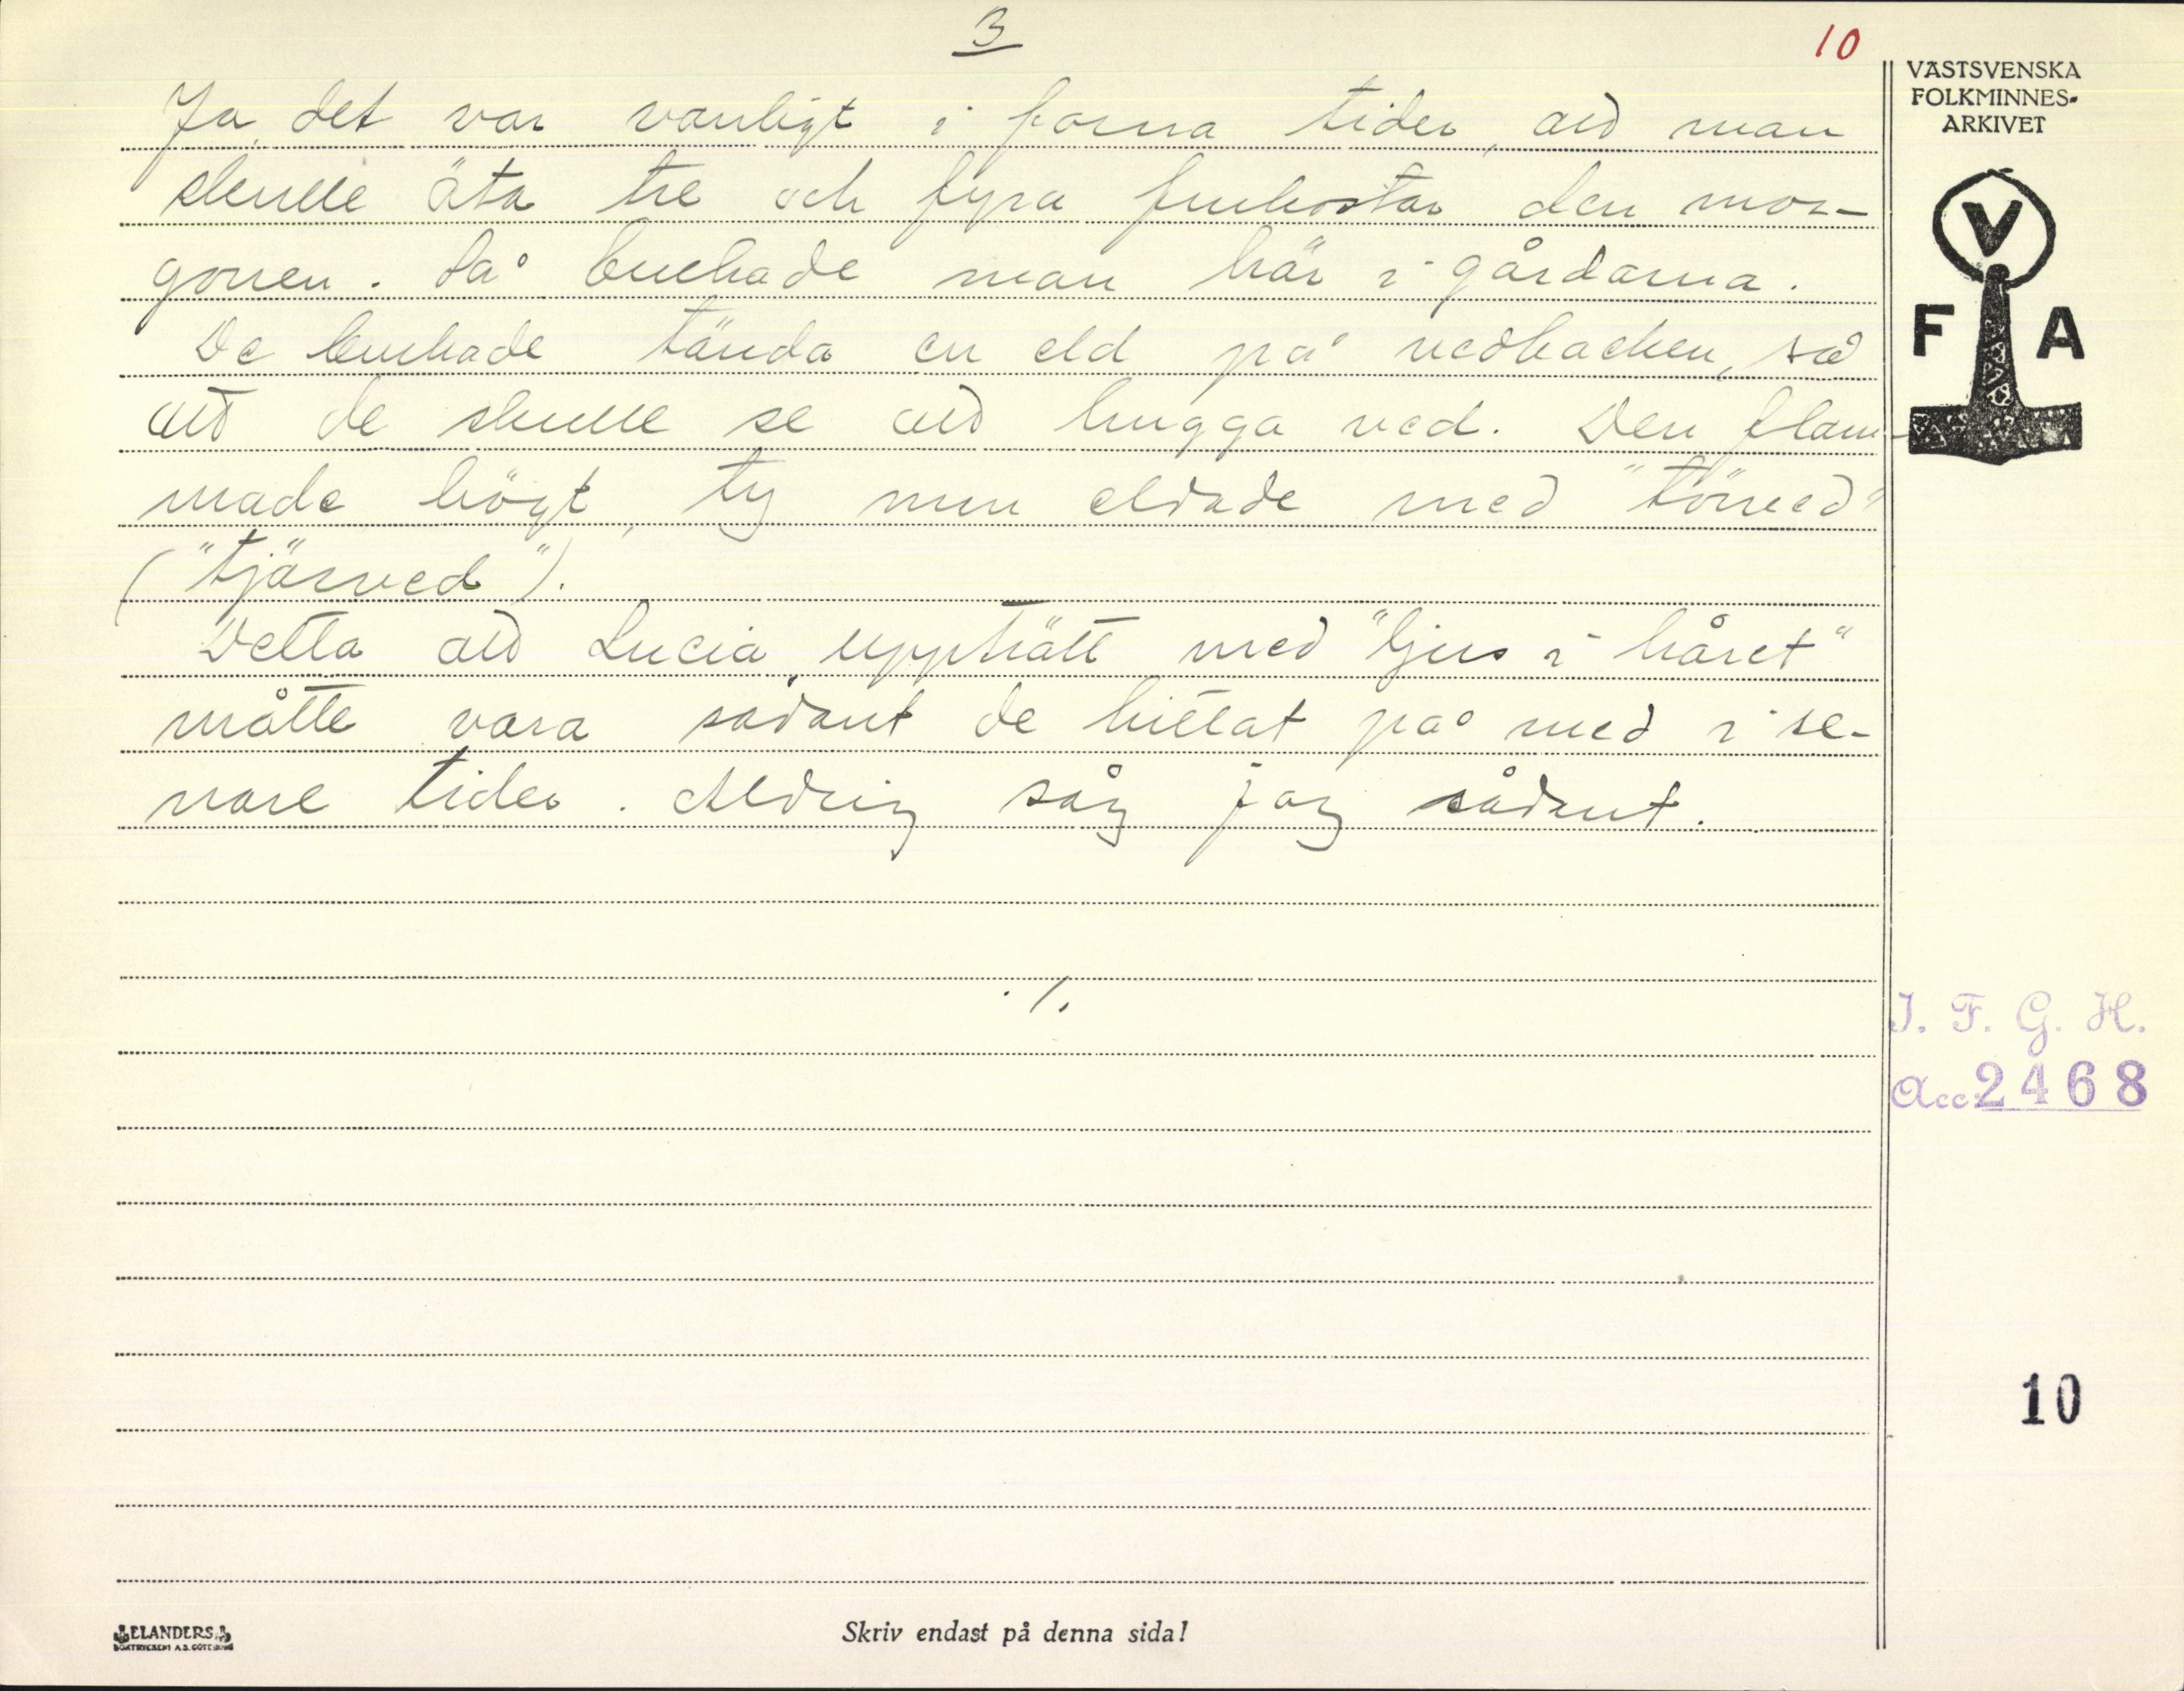 3
10
VÄSTSVENSKA
FOLKMINNES-
ARKIVET
Ja, det var vanligt i forna tider, att man
skulle äta tre och fyra frukostar den mor-
gonen. Så brukade man här i gårdarna.
De brukade tända en eld på vedbacken, så
att de skulle se att hugga ved. Den flam-
made högt, ty man eldade med "törved"
("tjärved").
Detta att Lucia uppträtt med "ljus i håret"
måtte vara sådant de hittat på med i se-
nare tider. Aldrig såg jag sådant.
./.
V
F A
I. F. G. H.
Acc: 2468
10
ELANDERS
BOKTRYCKERI A.B. GÖTEBORG
Skriv endast på denna sida!